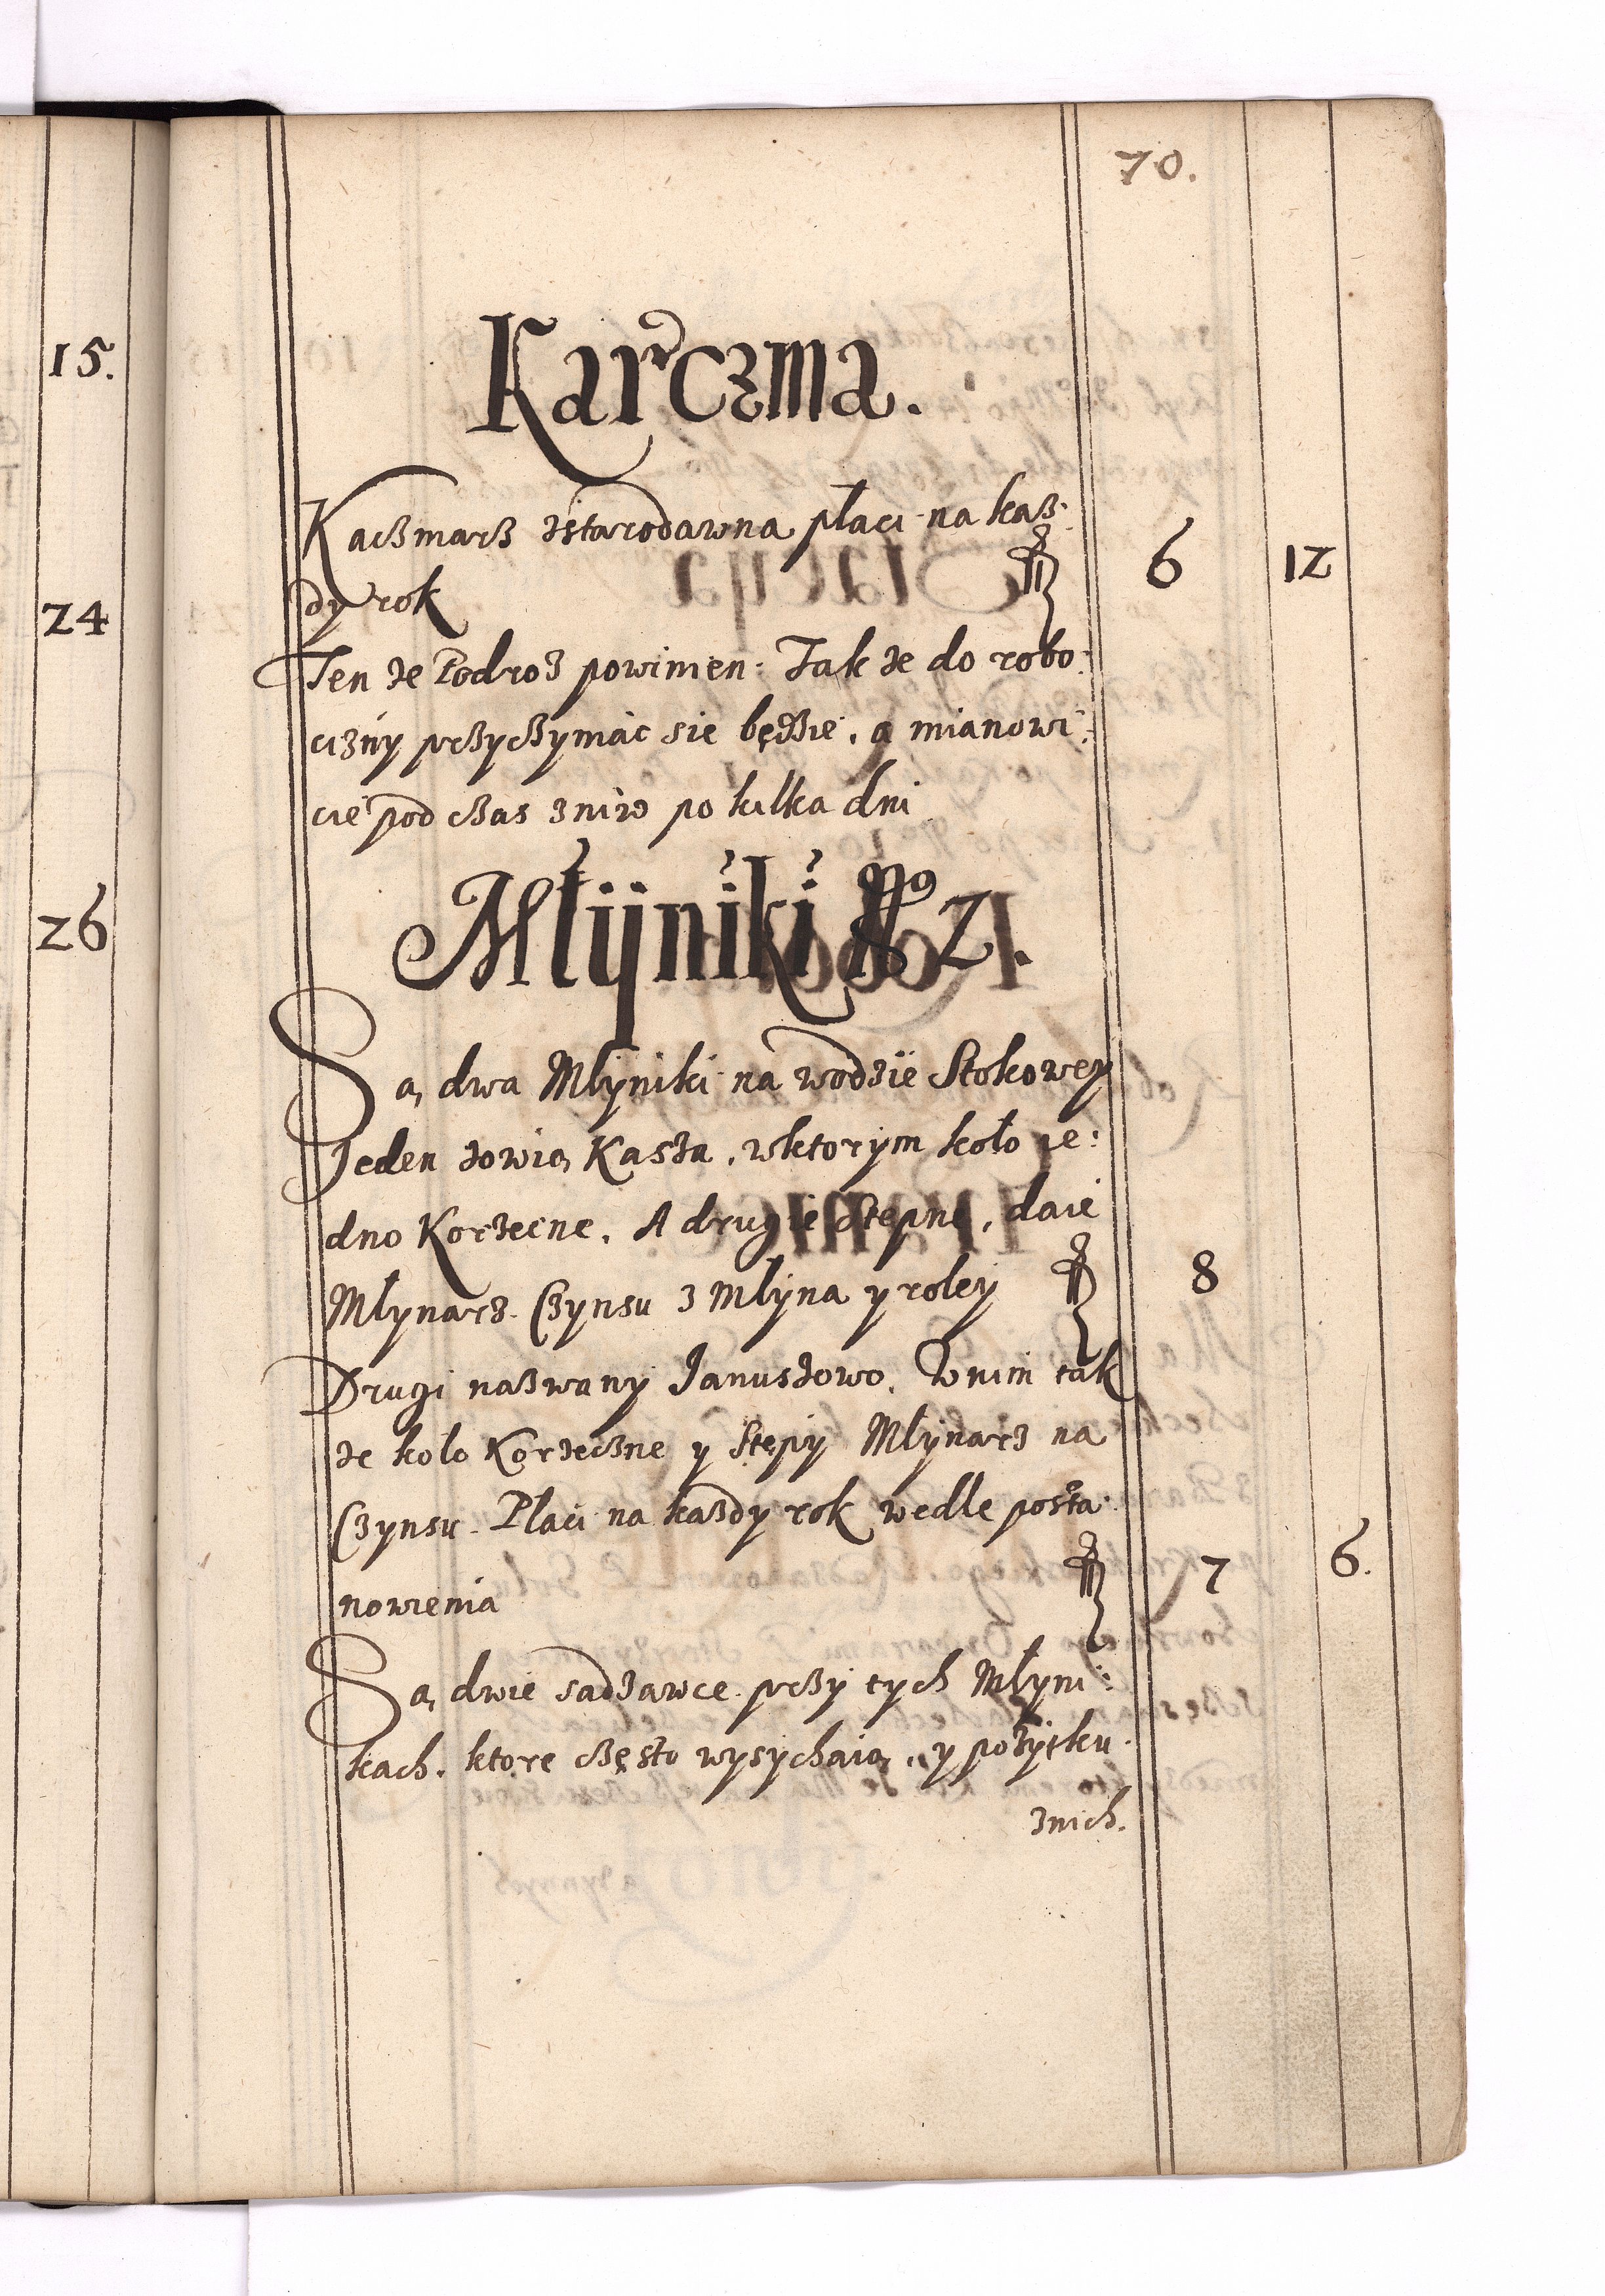 15.
24
26
70.
Karczma.
Kaczmarz zstarodawna płaci na kaz:
dy rok ff 6 12
Ten ze Podroz powinien: Tak ze do robo:
cizny przyczymac sie będzie, a mianowi:
cie pod czas zniw po kilka dni
Młÿniki No 2.
Są dwa Młyniki na wodzie Stokowey
Jeden zowią Kaszta, wktorym koło je:
dno Korzecne, A drugie Stępne, daie
Młynarz Czynsu z Młyna y roley ff 8
Drugi nazwany Januszowo, W nim tak
ze koło Korzeczne y Stępy Młynarz na
Czynsu Płaci na kazdy rok wedle posta:
nowienia ff 7 6.
Są dwie sadzawce przy tych Młyni:
kach, ktore często wysychaią, y pozytku
znich.